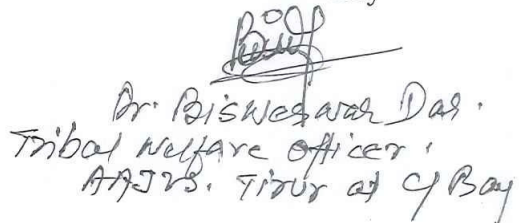 Dr. Bisweswar Das.
Tribal Welfare Officer.
AAJVS. Tirur at C/ Bay